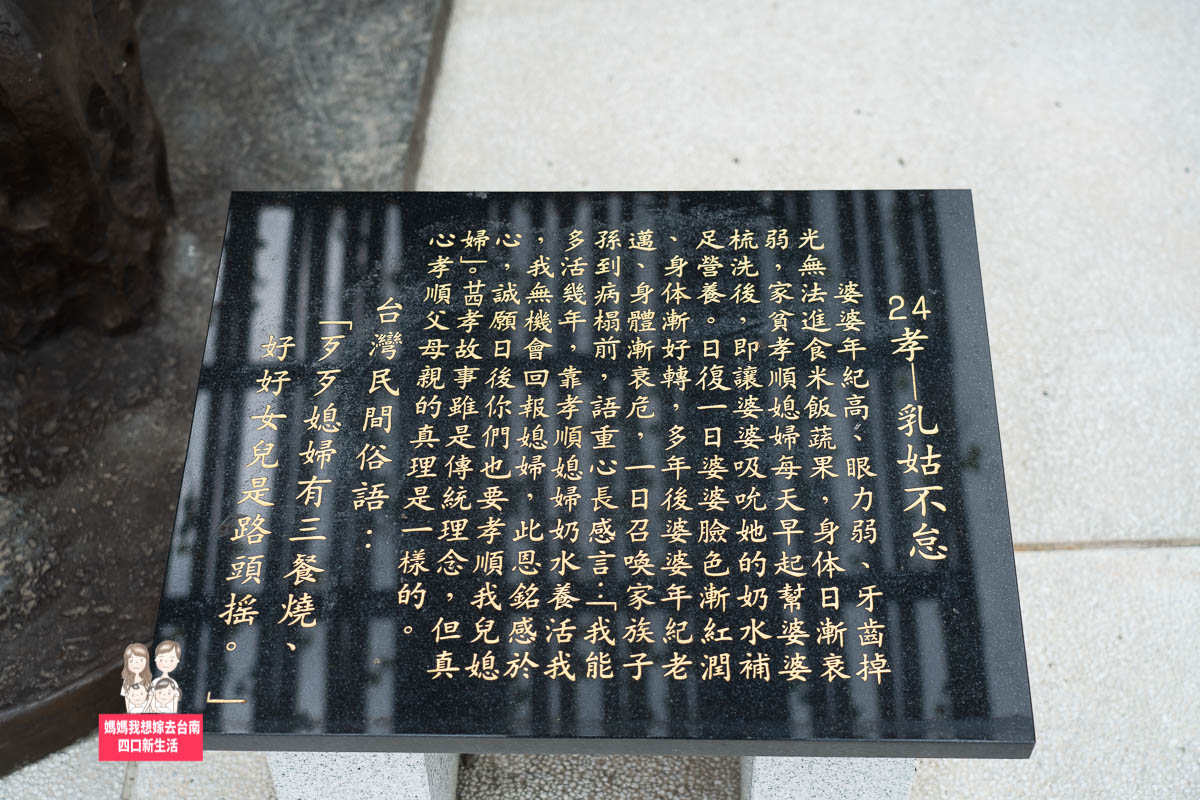 24孝—乳姑不怠
婆婆年紀高、眼力弱、牙齒掉
光無法進食米飯蔬果，身体日漸衰
弱，家貧孝順媳婦每天早起幫婆婆
梳洗後，即讓婆婆吸吮她的奶水補
足營養。日復一日婆婆臉色漸紅潤
、身体漸好轉，多年後婆婆年紀老
邁、身體漸衰危，一日召喚家族子
孫到病榻前，語重心長感言：「我能
多活幾年，靠孝順媳婦奶水養活我
，我無機會回報媳婦，此恩銘感於
心，誠願日後你們也要孝順我兒媳
婦」。莒孝故事雖是傳統理念，但真
心孝順父母親的真理是一樣的。
台灣民間俗語：
「歹歹媳婦有三餐燒、
好好女兒是路頭搖。」
媽媽我想嫁去台南
四口新生活